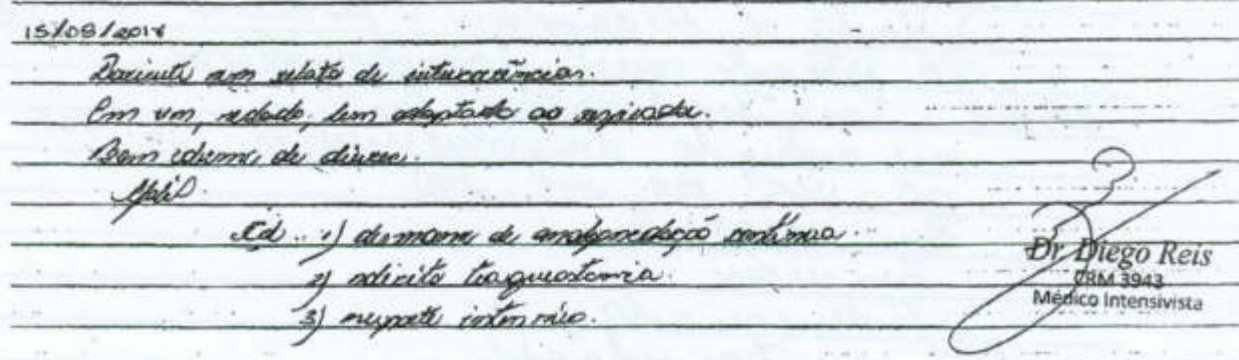 15/08/2018
Paciente sem relato de intercorrências.
Em vm, sedado, bem adaptado ao respirador.
Bom de diurese.
Cd.. 1) desmame de analgosedação contínua
2) solicito traqueostomia.
3) suporte intensivo.
Dr Diego Reis
CRM 3943
Médico Intensivista